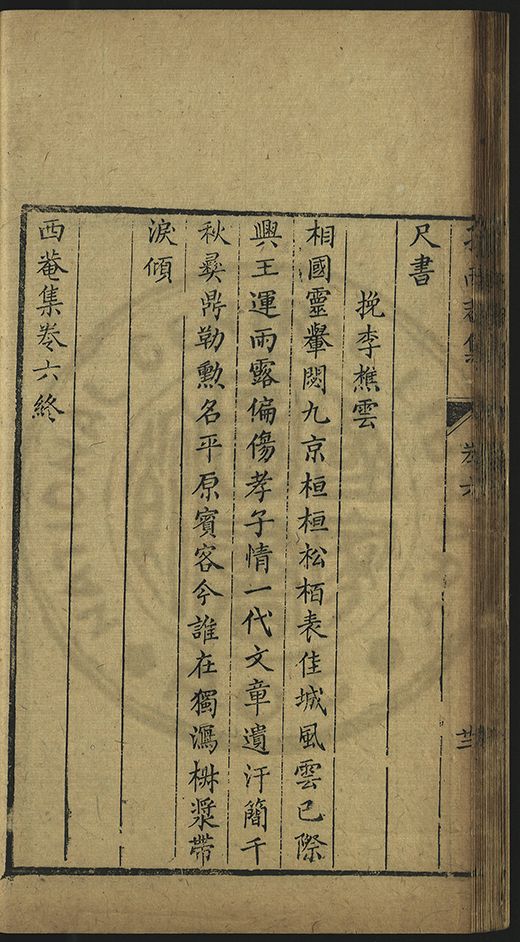 尺書
挽李樵雲
相國靈轝閟九京桓桓松栢表佳城風雲已際
興王運雨露偏傷孝子情一代文章遺汗簡千
秋彞鼎勒勲名平原賓客今誰在獨瀉椒漿帶
淚傾
西菴集卷六終